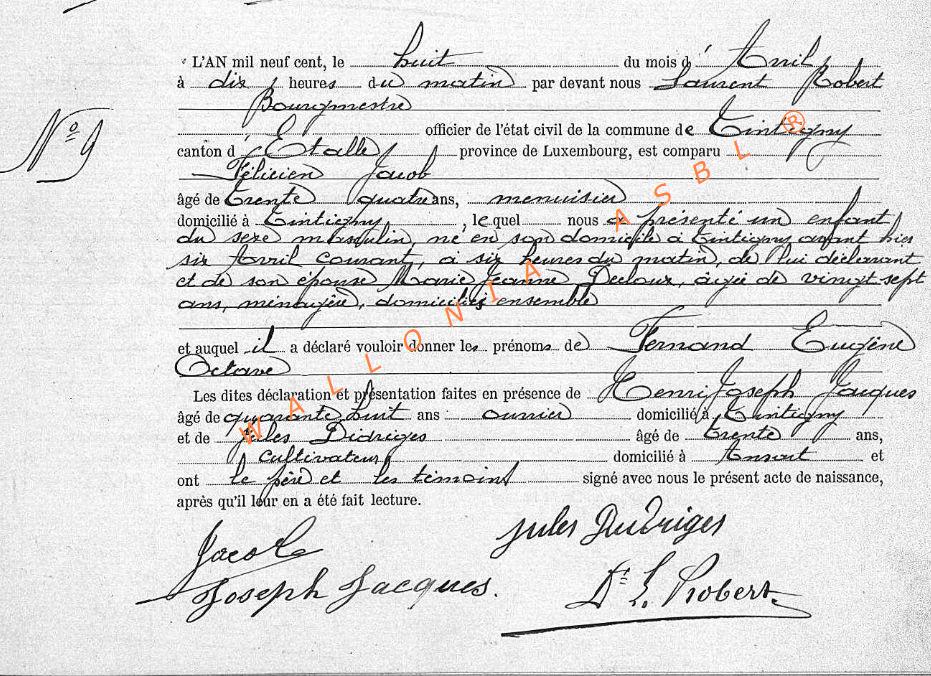 L'AN mil neuf cent, le huit du mois d' Avril
à dix heures du matin par devant nous Laurent Robert
Bourgmestre
officier de l'état civil de la commune de Tintigny
Nº 9
canton d' Etalle province de Luxembourg, est comparu
Félicien Jacob
âgé de trente quatre ans, menuisier
domicilié à Tintigny, lequel nous a présenté un enfant
du sexe masculin, né en son domicile à Tintigny avant hier
six Avril courant, à six heures du matin, de lui déclarant
et de son épouse Marie Jeanne Decloux, agée de vingt-sept
ans, ménagère, domiciliés ensemble
et auquel il a déclaré vouloir donner les prénoms de Fernand Eugène
Octave
Les dites déclaration et présentation faites en présence de Henri Joseph Jacques
âgé de quarante huit ans ouvrier domicilié à Tintigny
et de Jules Didriges âgé de trente ans,
cultivateur domicilié à Ansart et
ont le père et les témoins signé avec nous le présent acte de naissance,
après qu'il leur en a été fait lecture.
Jacob Jules Dudriges
Joseph Jacques. Dr L. Robert
WALLONIA ASBL ®